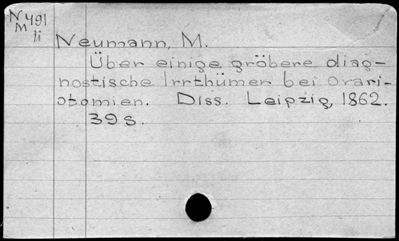 N 491
M
li
Neumann, M.
Über einige gröbere diag-
nostische Irrthümer bei Ovari-
otomien. Diss. Leipzig, 1862.
39 s.